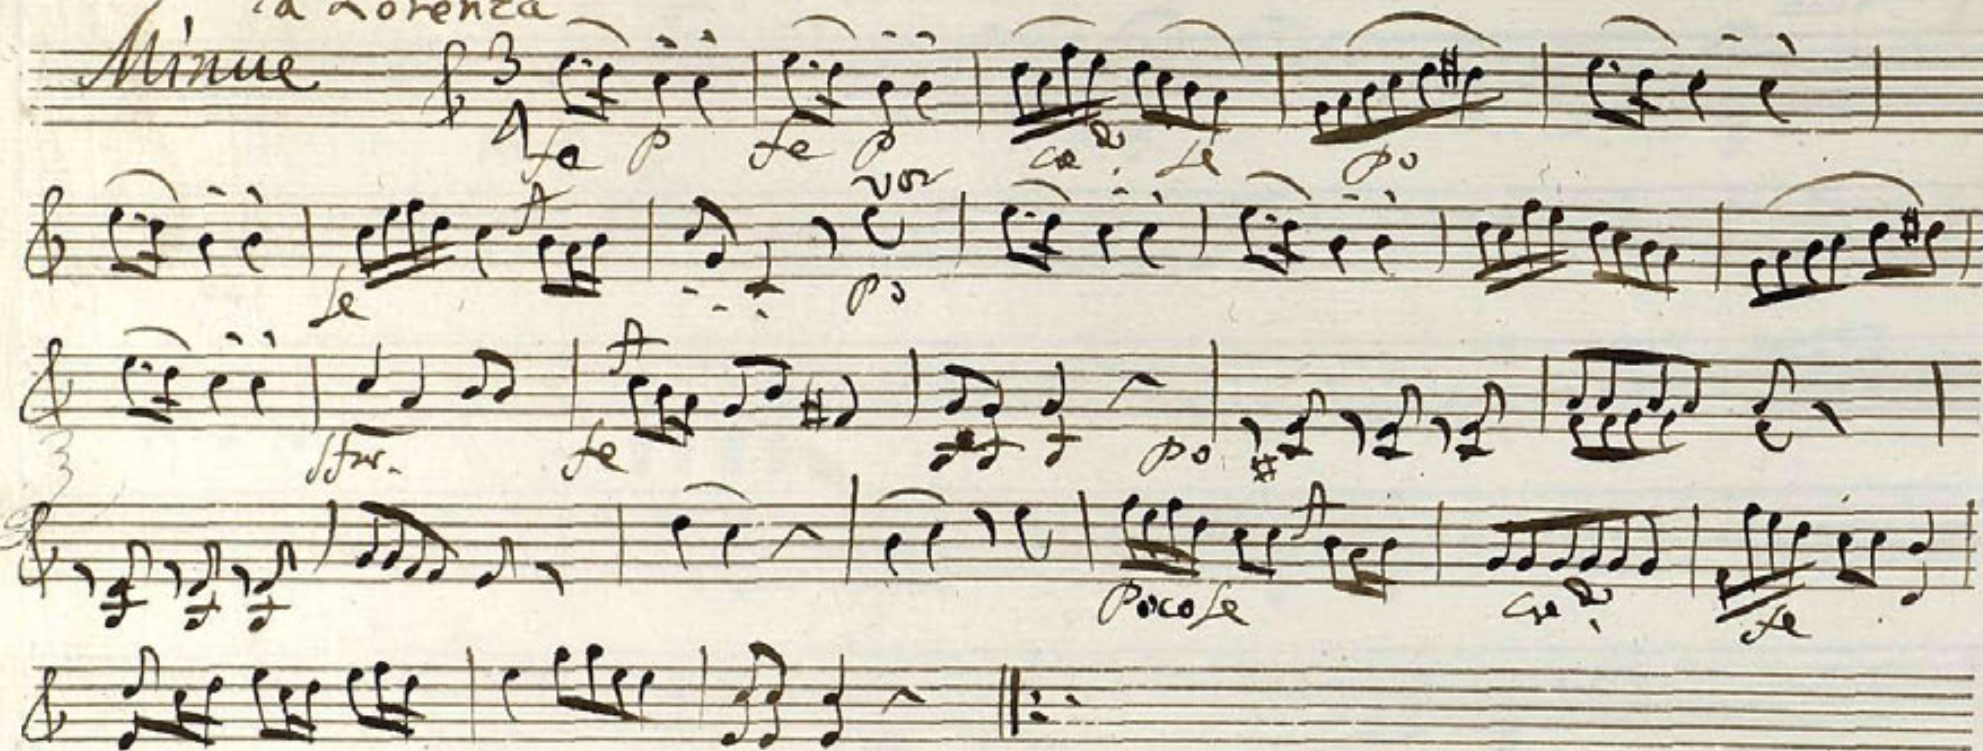 la Lorenza
Minue 3 4
fe p fe p cre fe po
vor
fe po
sfor. fe po
3
Poco fe cre fe